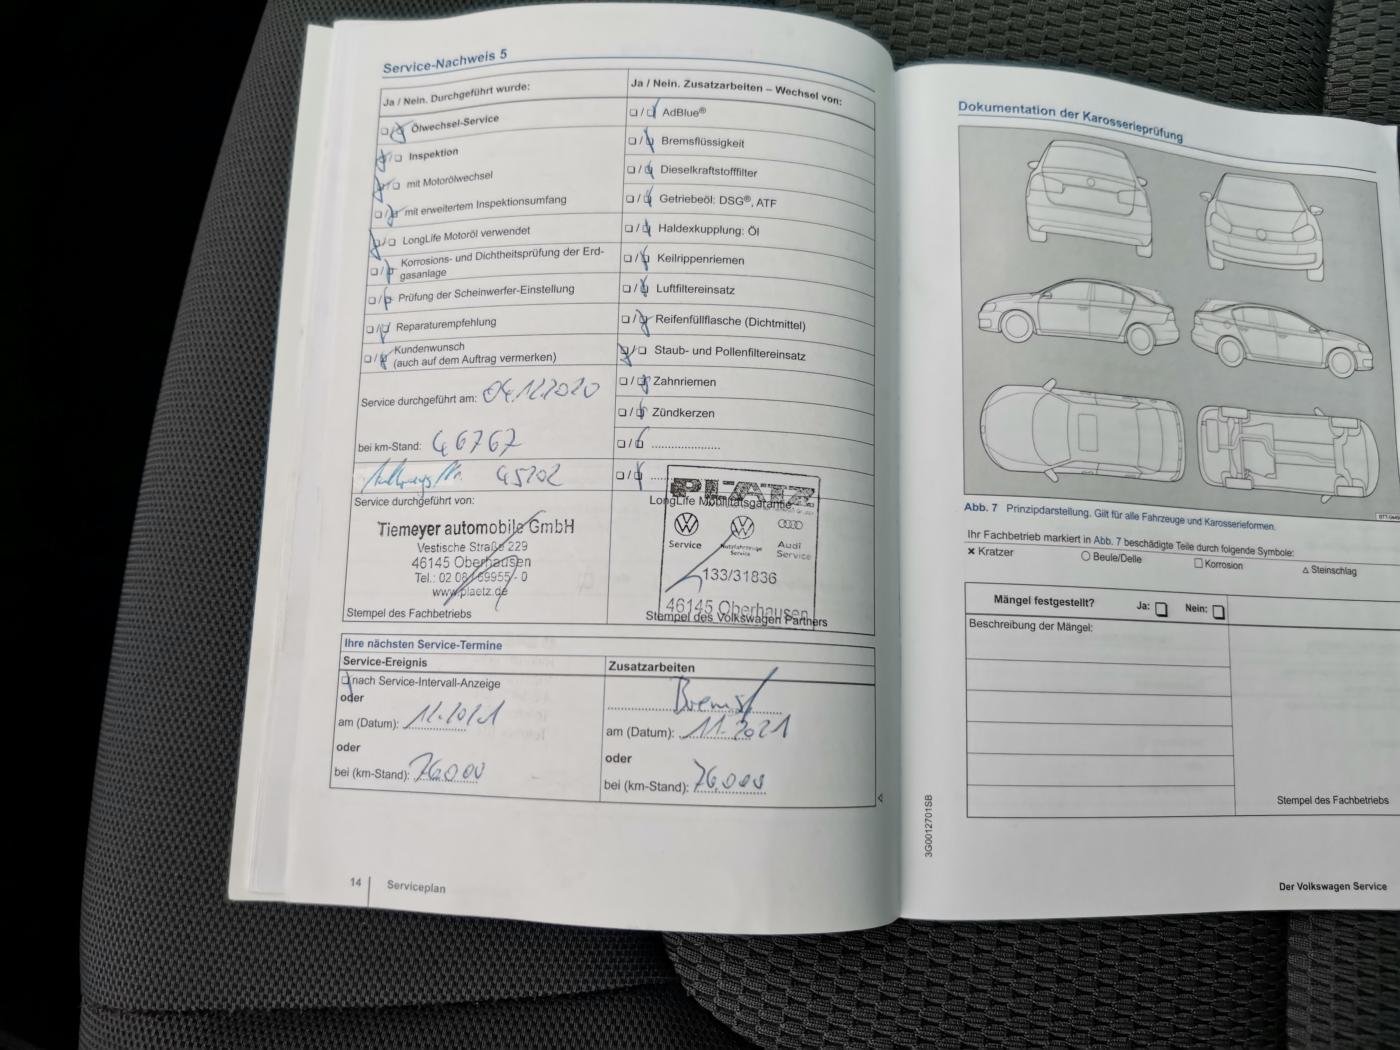 Service-Nachweis 5
Ja / Nein. Durchgeführt wurde:
Ölwechsel-Service
Inspektion
mit Motorölwechsel
mit erweitertem Inspektionsumfang
LongLife Motoröl verwendet
Korrosions- und Dichtheitsprüfung der Erd-
gasanlage
Prüfung der Scheinwerfer-Einstellung
Reparaturempfehlung
Kundenwunsch
(auch auf dem Auftrag vermerken)
Service durchgeführt am: 04.12.2020
bei km-Stand: 46767
45202
Service durchgeführt von:
Tiemeyer automobile GmbH
Vestische Straße 229
46145 Oberhausen
Tel.: 02 08/69955-0
www.plaetz.de
Stempel des Fachbetriebs
Ja / Nein. Zusatzarbeiten – Wechsel von:
AdBlue®
Bremsflüssigkeit
Dieselkraftstofffilter
Getriebeöl: DSG®, ATF
Haldexkupplung: Öl
Keilrippenriemen
Luftfiltereinsatz
Reifenfüllflasche (Dichtmittel)
Staub- und Pollenfiltereinsatz
Zahnriemen
Zündkerzen
LongLife Mobilitätsgarantie
Service
Nutzfahrzeuge
Service
Audi
Service
133/31836
46145 Oberhausen
Stempel des Volkswagen Partners
Ihre nächsten Service-Termine
Service-Ereignis
nach Service-Intervall-Anzeige
oder
am (Datum): 12.2021
oder
bei (km-Stand): 76.000
Zusatzarbeiten
Bremsf
am (Datum): 11.2021
oder
bei (km-Stand): 76.000
14 Serviceplan
Dokumentation der Karosserieprüfung
Abb. 7 Prinzipdarstellung. Gilt für alle Fahrzeuge und Karosserieformen.
Ihr Fachbetrieb markiert in Abb. 7 beschädigte Teile durch folgende Symbole:
× Kratzer ○ Beule/Delle □ Korrosion △ Steinschlag
Mängel festgestellt? Ja: □ Nein: □
Beschreibung der Mängel:
Stempel des Fachbetriebs
3G0012701SB
Der Volkswagen Service